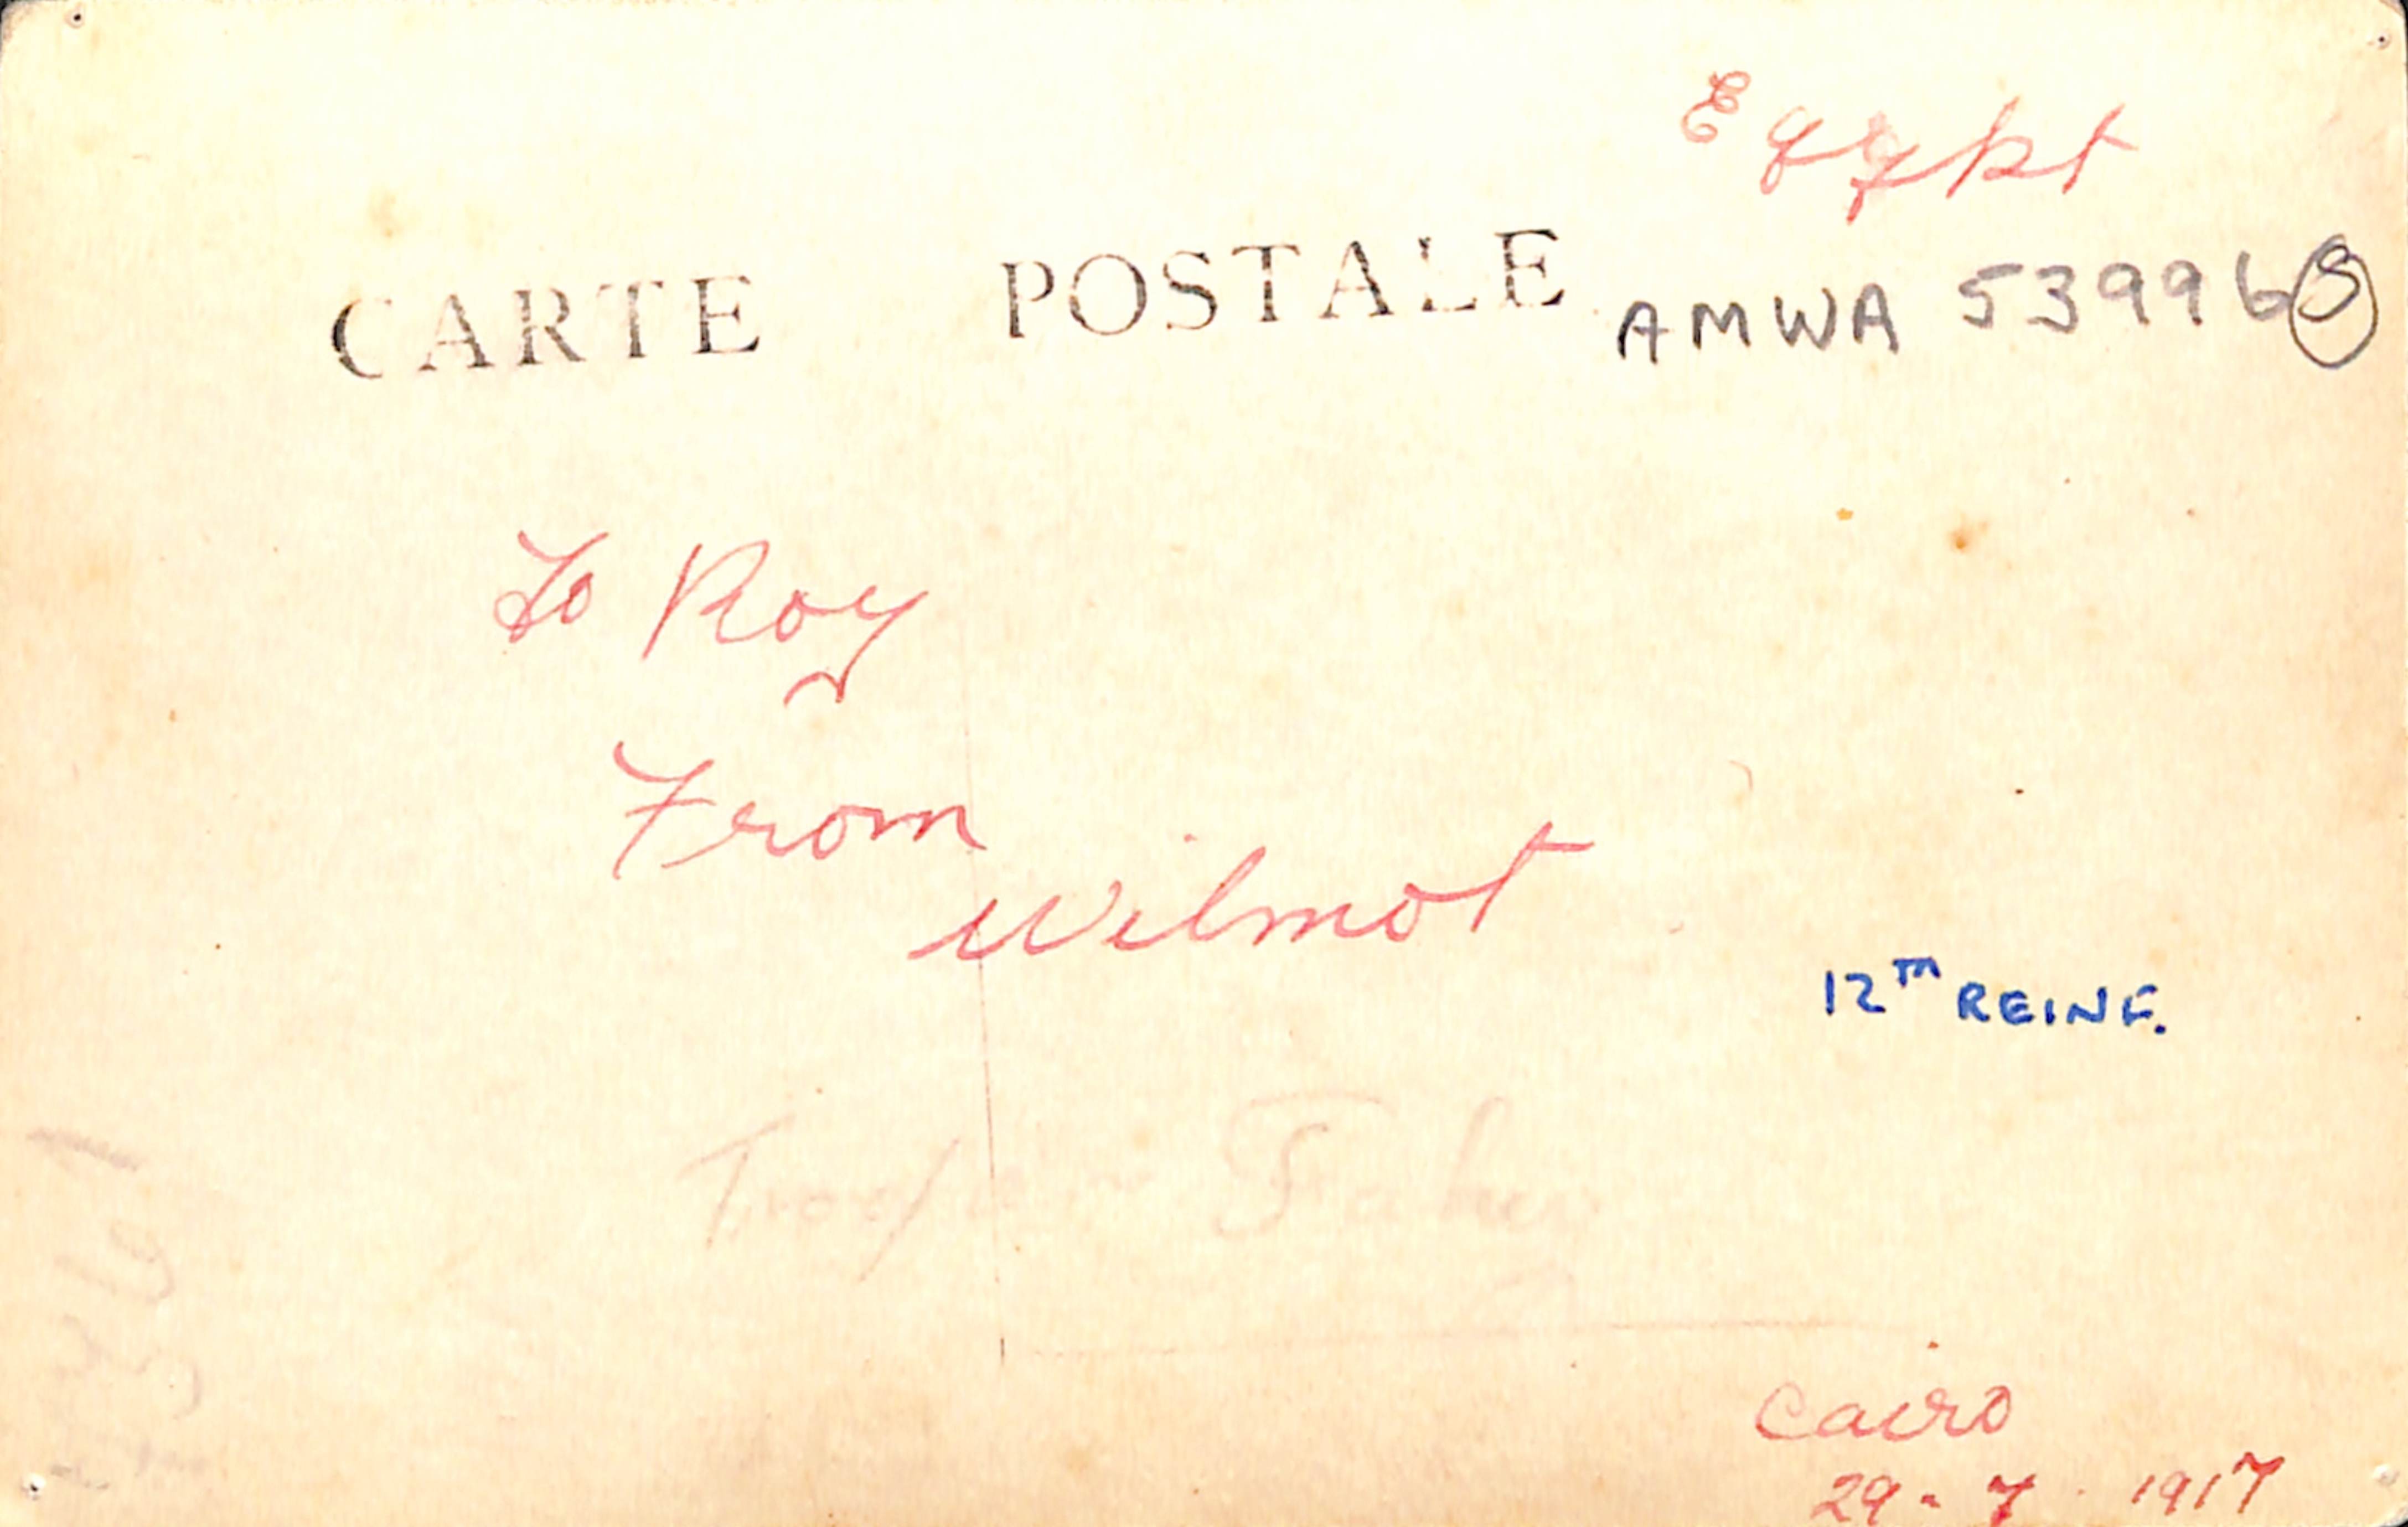 Egypt
CARTE POSTALE
AMWA 53996 S
To Roy
From
Wilmot
12TH REINF.
Trooper Fahey
Cairo
29 - 7 - 1917